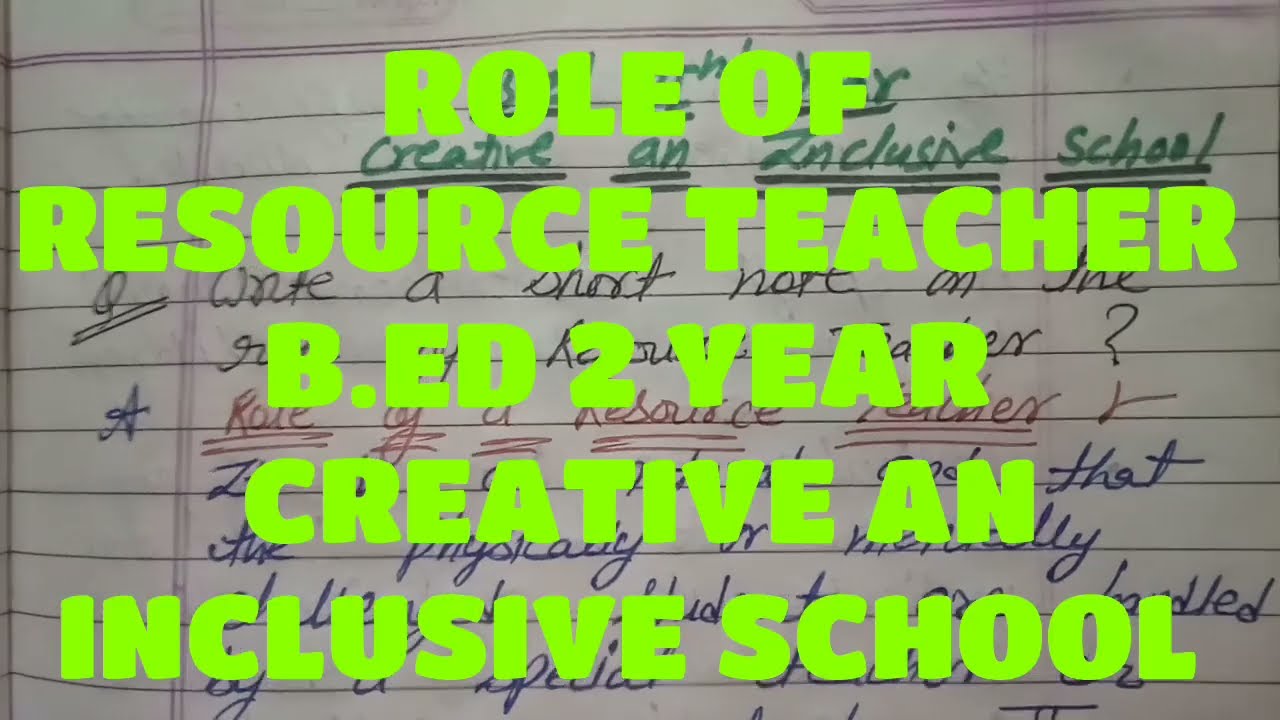 ROLE OF
creative an Inclusive school
RESOURCE TEACHER
Q Write a short note on the
B.ED 2 YEAR
Teacher ?
A Role of a Resource Teacher
CREATIVE AN
that
the physically or mentally
INCLUSIVE SCHOOL
handled
by a special teacher or